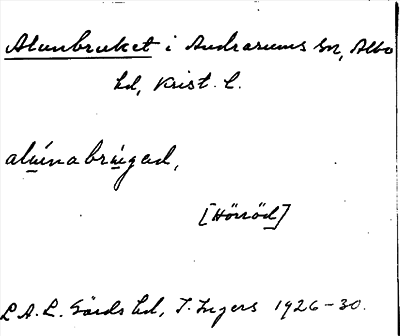 Alunbruket i Andrarums sn, Albo
hd, Krist. l.
alúnabrúgad,
[Hörröd]
L A. L. Gärds hd, I. Ingers 1926-30.